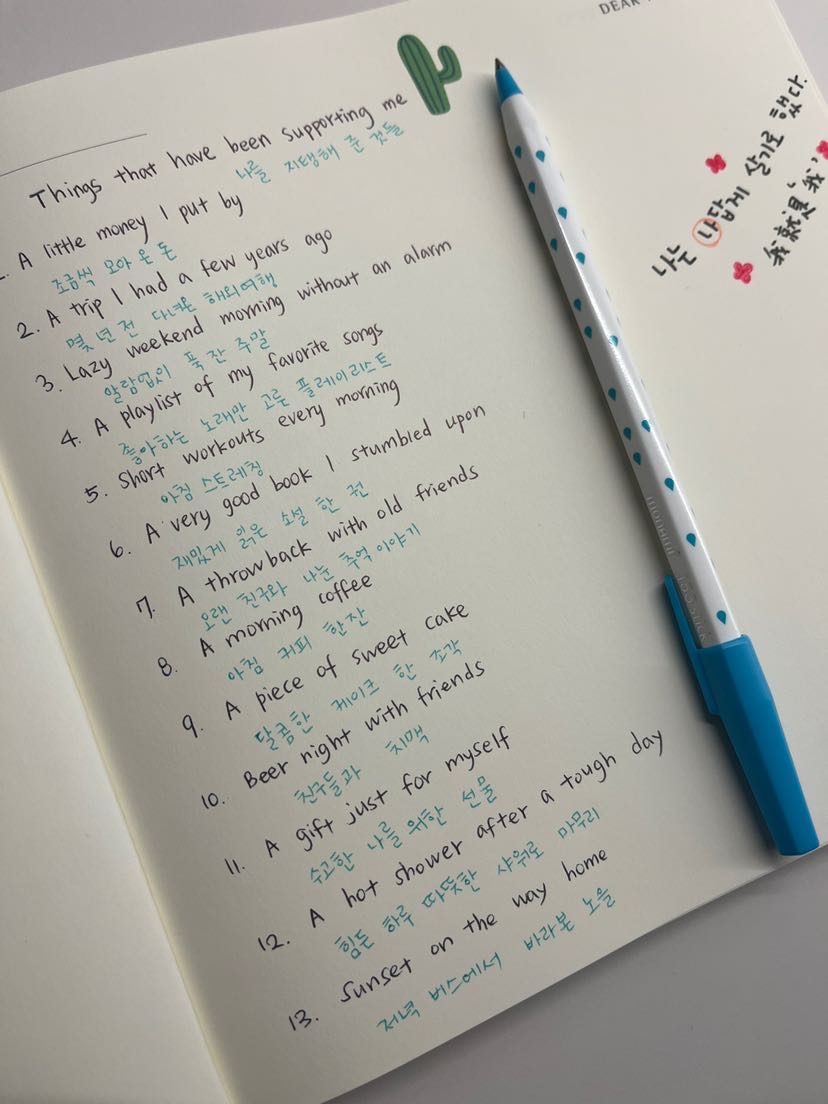 DEAR
Things that have been supporting me
나를 지탱해 준 것들
A little money I put by
조금씩 모아 온 돈
2. A trip I had a few years ago
몇 년 전 다녀온 해외여행
3. Lazy weekend morning without an alarm
알람없이 푹 잔 주말
4. A playlist of my favorite songs
좋아하는 노래만 고른 플레이리스트
5. Short workouts every morning
아침 스트레칭
6. A very good book I stumbled upon
재밌게 읽은 소설 한 권
7. A throwback with old friends
오랜 친구와 나눈 추억 이야기
8. A morning coffee
아침 커피 한잔
9. A piece of sweet cake
달콤한 케이크 한 조각
10. Beer night with friends
친구들과 치맥
11. A gift just for myself
수고한 나를 위한 선물
12. A hot shower after a tough day
힘든 하루 따뜻한 샤워로 마무리
13. Sunset on the way home
저녁 버스에서 바라본 노을
나는 나답게 살기로 했다.
我就是我,
monami